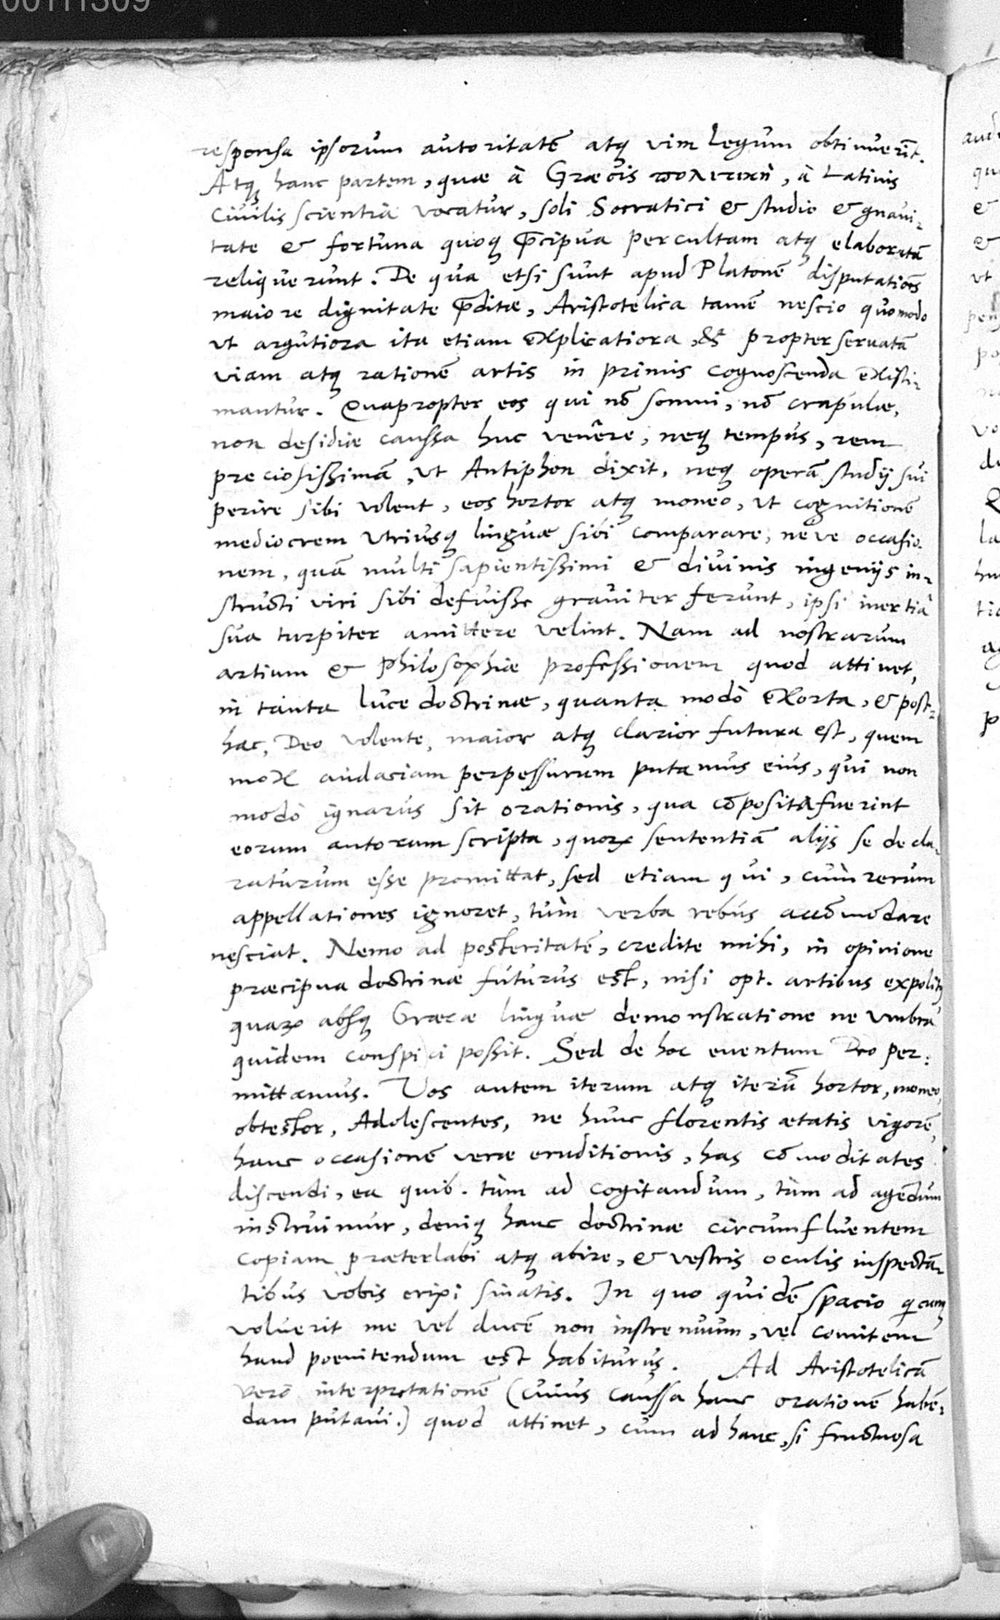 00111309
responsa ipsorum autoritatẽ atq; vim legum obtinuerĩt.
Atq; hanc partem, quae à Graecis πολιτικὴ, à Latinis
Civilis scientia vocatur, soli Socratici & studio & gnavi-
tate & fortuna quoq; p̃cipua percultam atq; elaboratã
reliquerunt. De qua etsi sunt apud Platonẽ disputationes
maiore dignitate p̃ditae, Aristotelica tamẽ nescio quomodo
ut argutiora ita etiam explicatiora, & propter servatã
viam atq; rationẽ artis in primis cognoscenda existi-
mantur. Quapropter eos qui nõ somni, nõ crapulae,
non desidiae caussa huc venêre, neq; tempus, rem
preciosissimã, ut Antiphon dixit, neq; operã studij sui
perire sibi volent, eos hortor atq; moneo, ut cognitionẽ
mediocrem utriusq; linguae sibi comparare, neve occasio-
nem, quã multi sapientissimi & divinis ingenijs in-
structi viri sibi defuisse graviter ferunt, ipsi inertiâ
sua turpiter amittere velint. Nam ad nostrarum
artium & philosophiae professionem quod attinet,
in tanta luce doctrinae, quanta modò exorta, & post-
hac, Deo volente, maior atq; clarior futura est, quem
mox audaciam perpessurum putamus eius, qui non
modò ignarus sit orationis, qua cõposita fuerint
eorum autorum scripta, quorũ sententiã alijs se decla-
raturum esse promittat, sed etiam qui, cùm rerum
appellationes ignoret, tùm verba rebus accõmodare
nesciat. Nemo ad posteritatẽ, credite mihi, in opinione
praecipua doctrinae futurus est, nisi opt. artibus expolitus
quarũ absq; Graecae linguae demonstratione ne umbra
quidem conspici possit. Sed de hoc eventum Deo per-
mittamus. Vos autem iterum atq; iterũ hortor, moneo,
obtestor, Adolescentes, ne hunc florentis aetatis vigorẽ,
hanc occasionẽ verae eruditionis, has cõmoditates
discendi, ea quib. tùm ad cogitandum, tùm ad agẽdum
instruimur, deniq; hanc doctrinae circumfluentem
copiam praeterlabi atq; abire, & vestris oculis inspectã-
tibus vobis eripi sinatis. In quo quidẽ spacio q̃cunq;
voluerit me vel ducẽ non instrenuum, vel comitem
haud poenitendum est habiturus. Ad Aristotelicã
verò interpretationẽ (cuius caussa hanc orationẽ habẽ-
dam putavi.) quod attinet, cùm ad hanc, si fructuosa